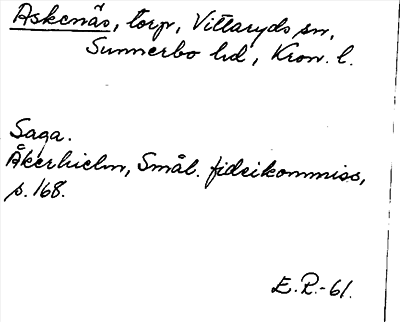 Askenäs, torp, Vittaryds sn,
Sunnerbo hd, Kron. l.
Saga.
Åkerhielm, Smål. fideikommiss,
s. 168.
E. R.-61.